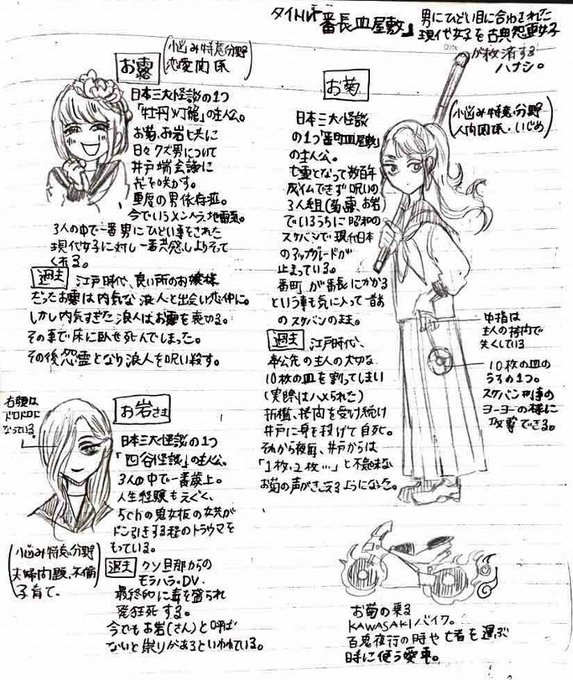 タイトル「番長皿屋敷」
男にひどい目に合わされた
現代女子を古典怨霊女子
が救済する
ハナシ。
お露
(お悩み特意分野
恋愛関係)
日本三大怪談の1つ
「牡丹灯籠」の主人公。
お菊、お岩と共に
日々クズ男について
井戸端会議に
花を咲かす。
重度の男依存症。
今でいうメンヘラ、地雷系。
3人の中で一番男にひどい事をされた
現代女子に対し一番共感しよりそって
くれる。
過去 江戸時代、良い所のお嬢様
だったお露は内気な浪人と出会い恋仲に。
しかし内気すぎた浪人はお露を裏切る。
その事で床に臥せ死んでしまった。
その後怨霊となり浪人を呪い殺す。
お菊
(お悩み特意分野
人間関係・いじめ)
日本三大怪談
の1つ「番町皿屋敷」
の主人公。
亡霊となって数百年
成仏できず呪いの
3人組(お露、お岩)
でいるうちに昭和の
スケバンで現代日本
のアップグレードが
止まっている。
番町が番長にかかる
という事を気に入って昔
のスケバンのまま。
過去 江戸時代、
奉公先の主人の大切な
10枚の皿を割ってしまい
(実際はハメられた)
折檻、拷問を受け続け
井戸に身を投げて自死。
それから夜毎、井戸からは
「1枚、2枚…」と不気味な
お菊の声がきこえるようになった。
中指は
主人の拷問で
失くしている
10枚の皿の
うちの1つ。
スケバン刑事の
ヨーヨーの様に
攻撃できる。
右顔は
ドロドロに
なっている。
お岩さま
日本三大怪談の1つ
「四谷怪談」の主人公。
3人の中で一番歳上。
人生経験もえぐく、
5chの鬼女板の女共が
ドン引きする程のトラウマを
もっている。
(お悩み特意分野
夫婦問題、不倫
子育て、
過去 クソ旦那からの
モラハラ・DV.
最終的に毒を盛られ
発狂死する。
今でもお岩(さん)と呼ば
ないと祟りがあるといわれている。
お菊の乗る
KAWASAKIバイク。
百鬼夜行の時や亡者を運ぶ
時に使う愛車。